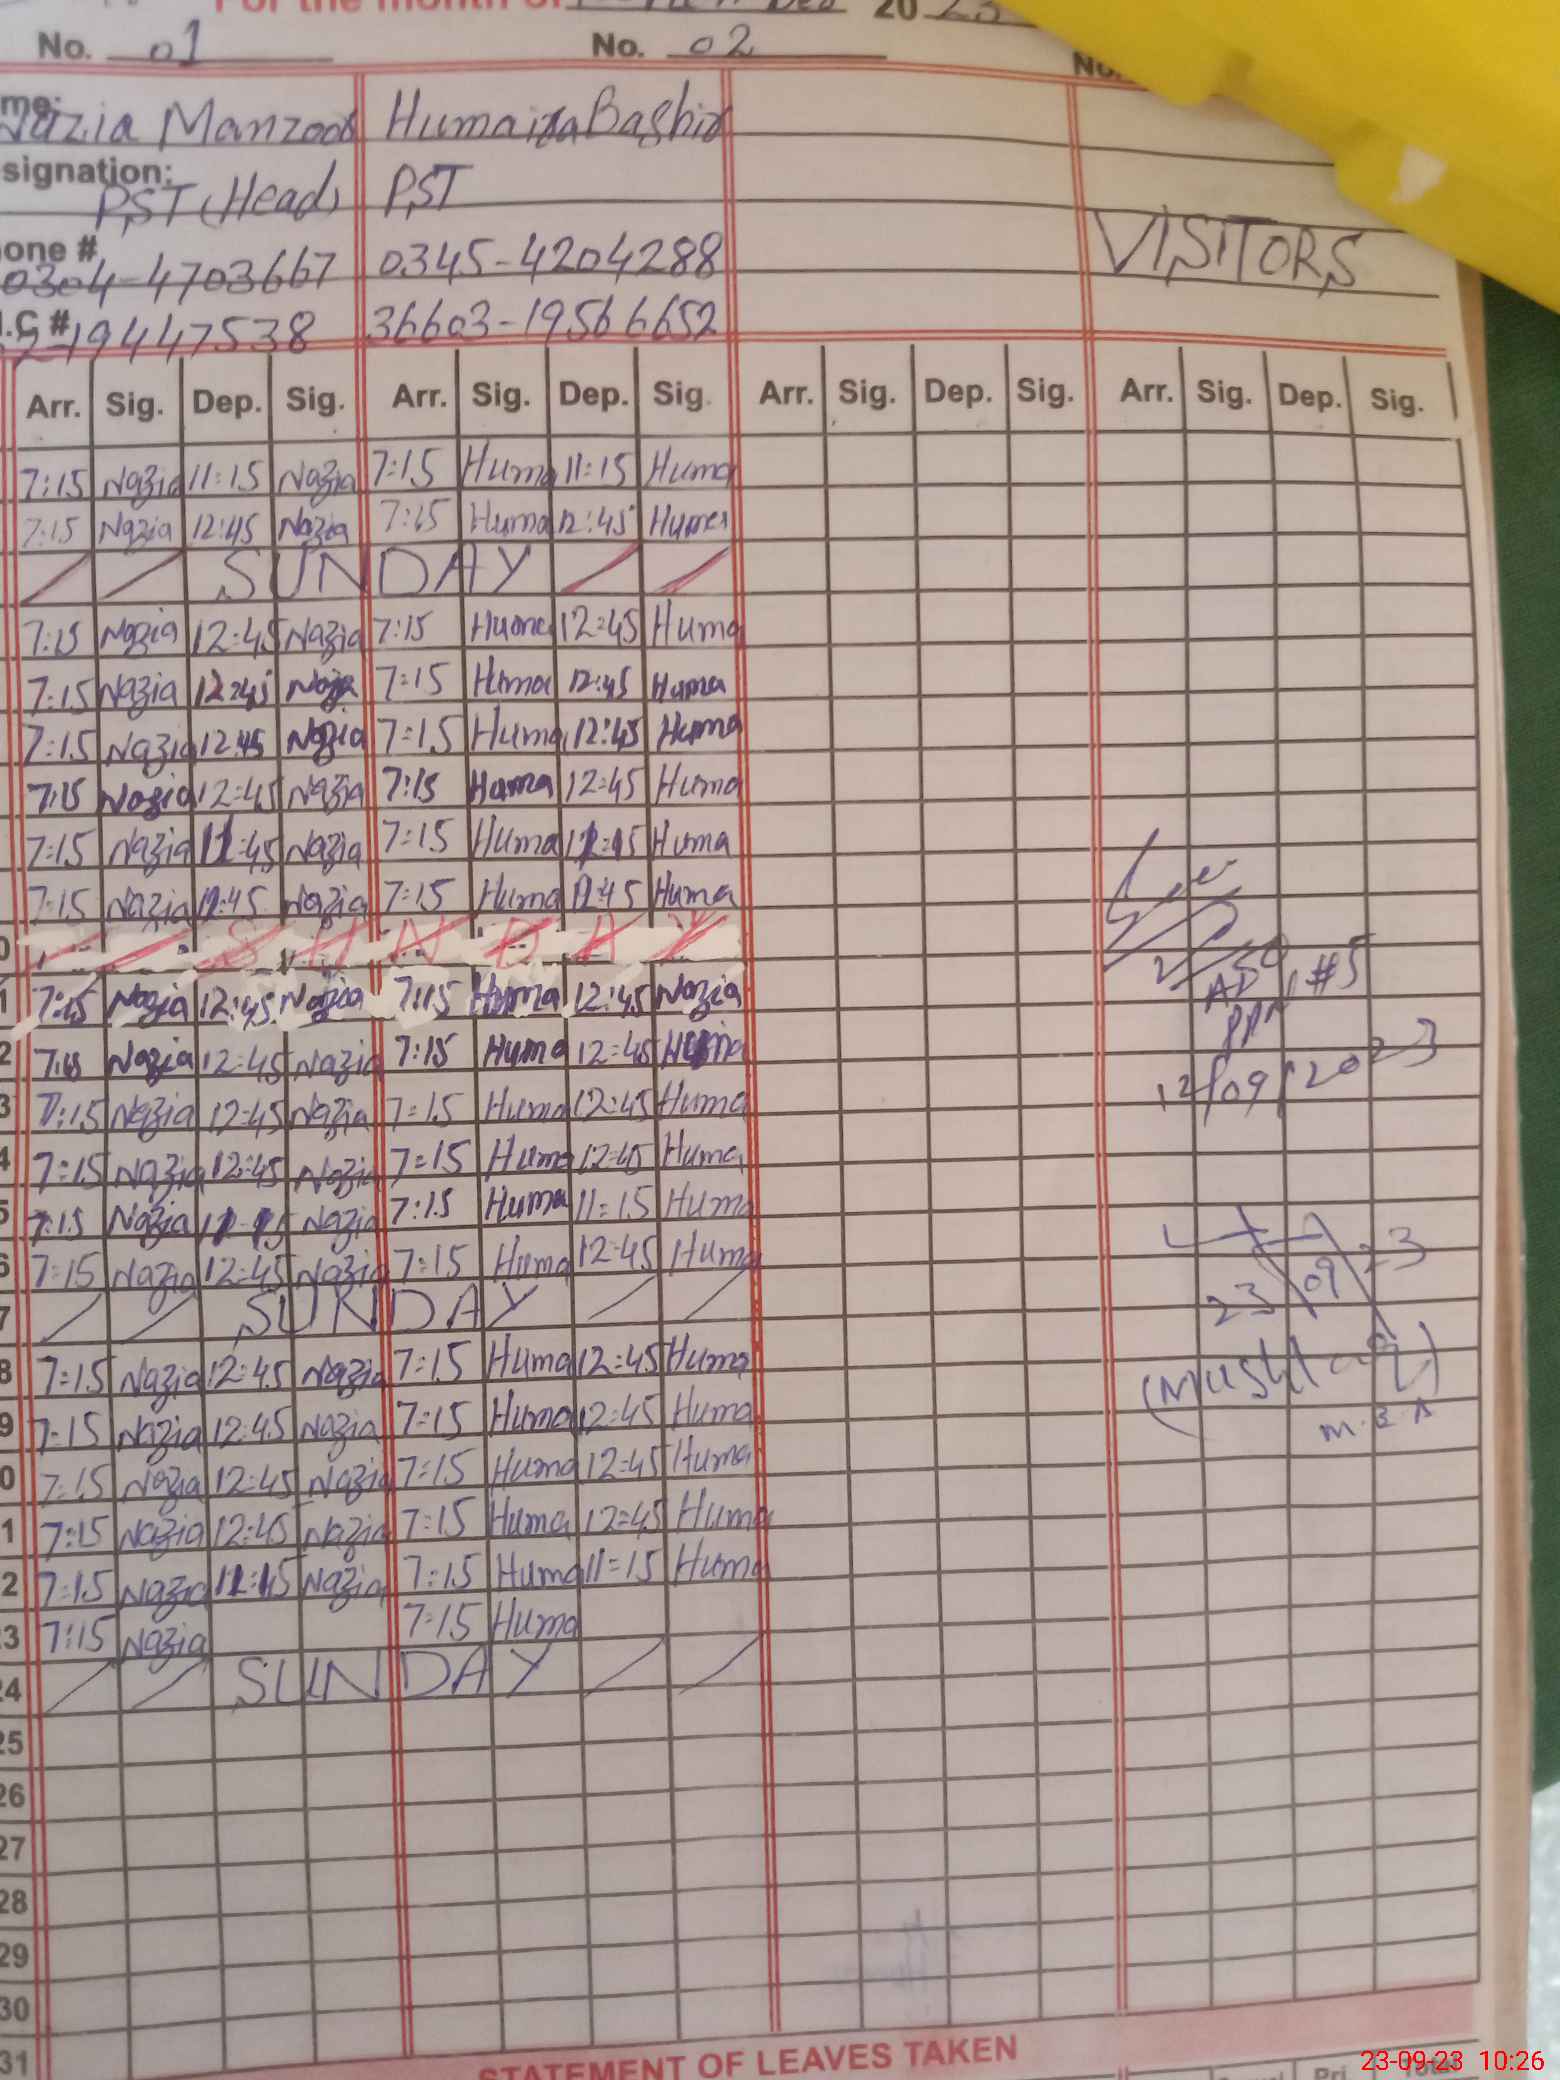 For the month of 20 23
No. 01 No. 02 No.
me: Nazia Manzoor Humaira Bashir
signation: PST (Head) PST
one # 0304-4703667 0345-4204288 VISITORS
I.C # 2-19447538 36603-19566652
Arr. Sig. Dep. Sig. Arr. Sig. Dep. Sig. Arr. Sig. Dep. Sig. Arr. Sig. Dep. Sig.
7:15 Nazia 11:15 Nazia 7:15 Huma 11:15 Huma
7:15 Nazia 12:45 Nazia 7:15 Huma 12:45 Huma
SUNDAY
7:15 Nazia 12:45 Nazia 7:15 Huma 12:45 Huma
7:15 Nazia 12:45 Nazia 7:15 Huma 12:45 Huma
7:15 Nazia 12:45 Nazia 7:15 Huma 12:45 Huma
7:15 Nazia 12:45 Nazia 7:15 Huma 12:45 Huma
7:15 Nazia Nazia 7:15 Huma Huma
7:15 Nazia 12:45 Nazia 7:15 Huma 12:45 Huma
0 SUNDAY
1 7:15 Nazia 12:45 Nazia 7:15 Huma 12:45 Nazia
#5
2 7:15 Nazia 12:45 Nazia 7:15 Huma 12:45 Huma
3 7:15 Nazia 12:45 Nazia 7:15 Huma 12:45 Huma 12/09/2023
4 7:15 Nazia 12:45 Nazia 7:15 Huma 12:45 Huma
5 7:15 Nazia Nazia 7:15 Huma 11:15 Huma
6 7:15 Nazia 12:45 Nazia 7:15 Huma 12:45 Huma 23/09/23
7 SUNDAY
8 7:15 Nazia 12:45 Nazia 7:15 Huma 12:45 Huma (Mushtaq)
9 7:15 Nazia 12:45 Nazia 7:15 Huma 12:45 Huma M.E.A
0 7:15 Nazia 12:45 Nazia 7:15 Huma 12:45 Huma
1 7:15 Nazia 12:45 Nazia 7:15 Huma 12:45 Huma
2 7:15 Nazia 11:15 Nazia 7:15 Huma 11:15 Huma
23 7:15 Nazia 7:15 Huma
24 SUNDAY
25
26
27
28
29
30
31
STATEMENT OF LEAVES TAKEN
Pri. Total
23-09-23 10:26